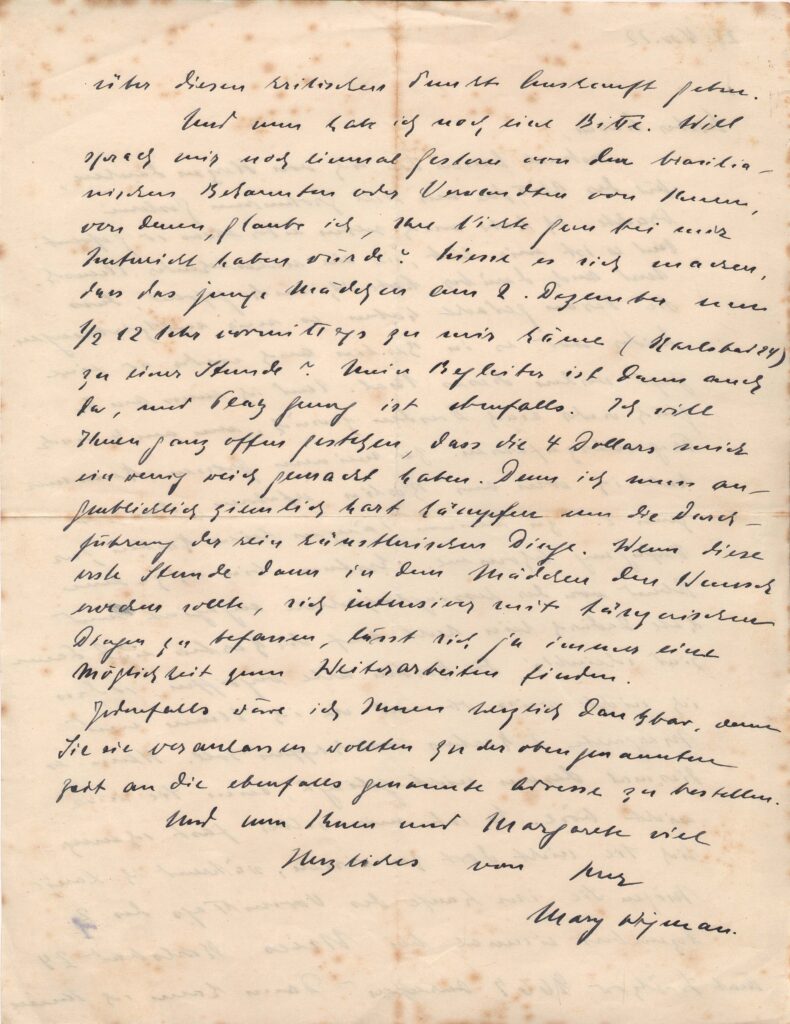 über diesen kritischen Punkt Auskunft geben.
Und nun hab ich noch eine Bitte. Will
sprach mir noch einmal gestern von den brasilia-
nischen Bekannten oder Verwandten von Ihnen,
von denen, glaube ich, Ihre Nichte gern bei mir
Unterricht haben würde? Liesse es sich machen,
dass das junge Mädchen am 2. Dezember um
1/2 12 Uhr vormittags zu mir käme (Karlsbad 24)
zu einer Stunde? Mein Begleiter ist dann auch
da, und Platz genug ist ebenfalls. Ich will
Ihnen ganz offen gestehen, dass die 4 Dollars mich
ein wenig weich gemacht haben. Denn ich muss au-
genblicklich ziemlich hart kämpfen um die Durch-
führung der rein künstlerischen Dinge. Wenn diese
erste Stunde dann in dem Mädchen den Wunsch
erwecken sollte, sich intensiver mit tänzerischen
Dingen zu befassen, lässt sich ja immer eine
Möglichkeit zum Weiterarbeiten finden.
Jedenfalls wäre ich Ihnen herzlich dankbar, wenn
Sie sie veranlassen wollten zu der oben genannten
Zeit an die ebenfalls genannte Adresse zu bestellen.
Und nun Ihnen und Margarete viel
Herzliches von Ihrer
Mary Wigman.